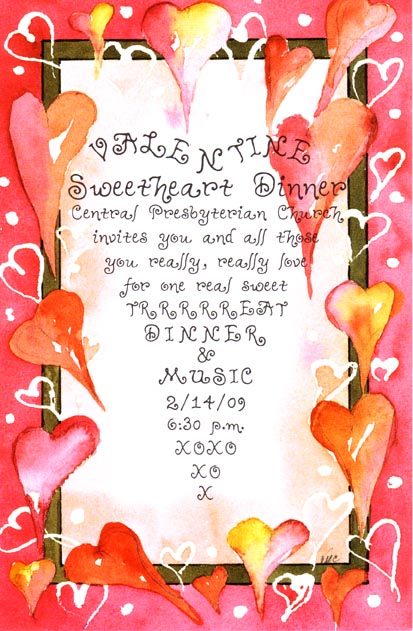 VALENTINE
Sweetheart Dinner
Central Presbyterian Church
invites you and all those
you really, really love
for one real sweet
TRRRRREAT
DINNER
&
MUSIC
2/14/09
6:30 p.m.
XOXO
XO
X